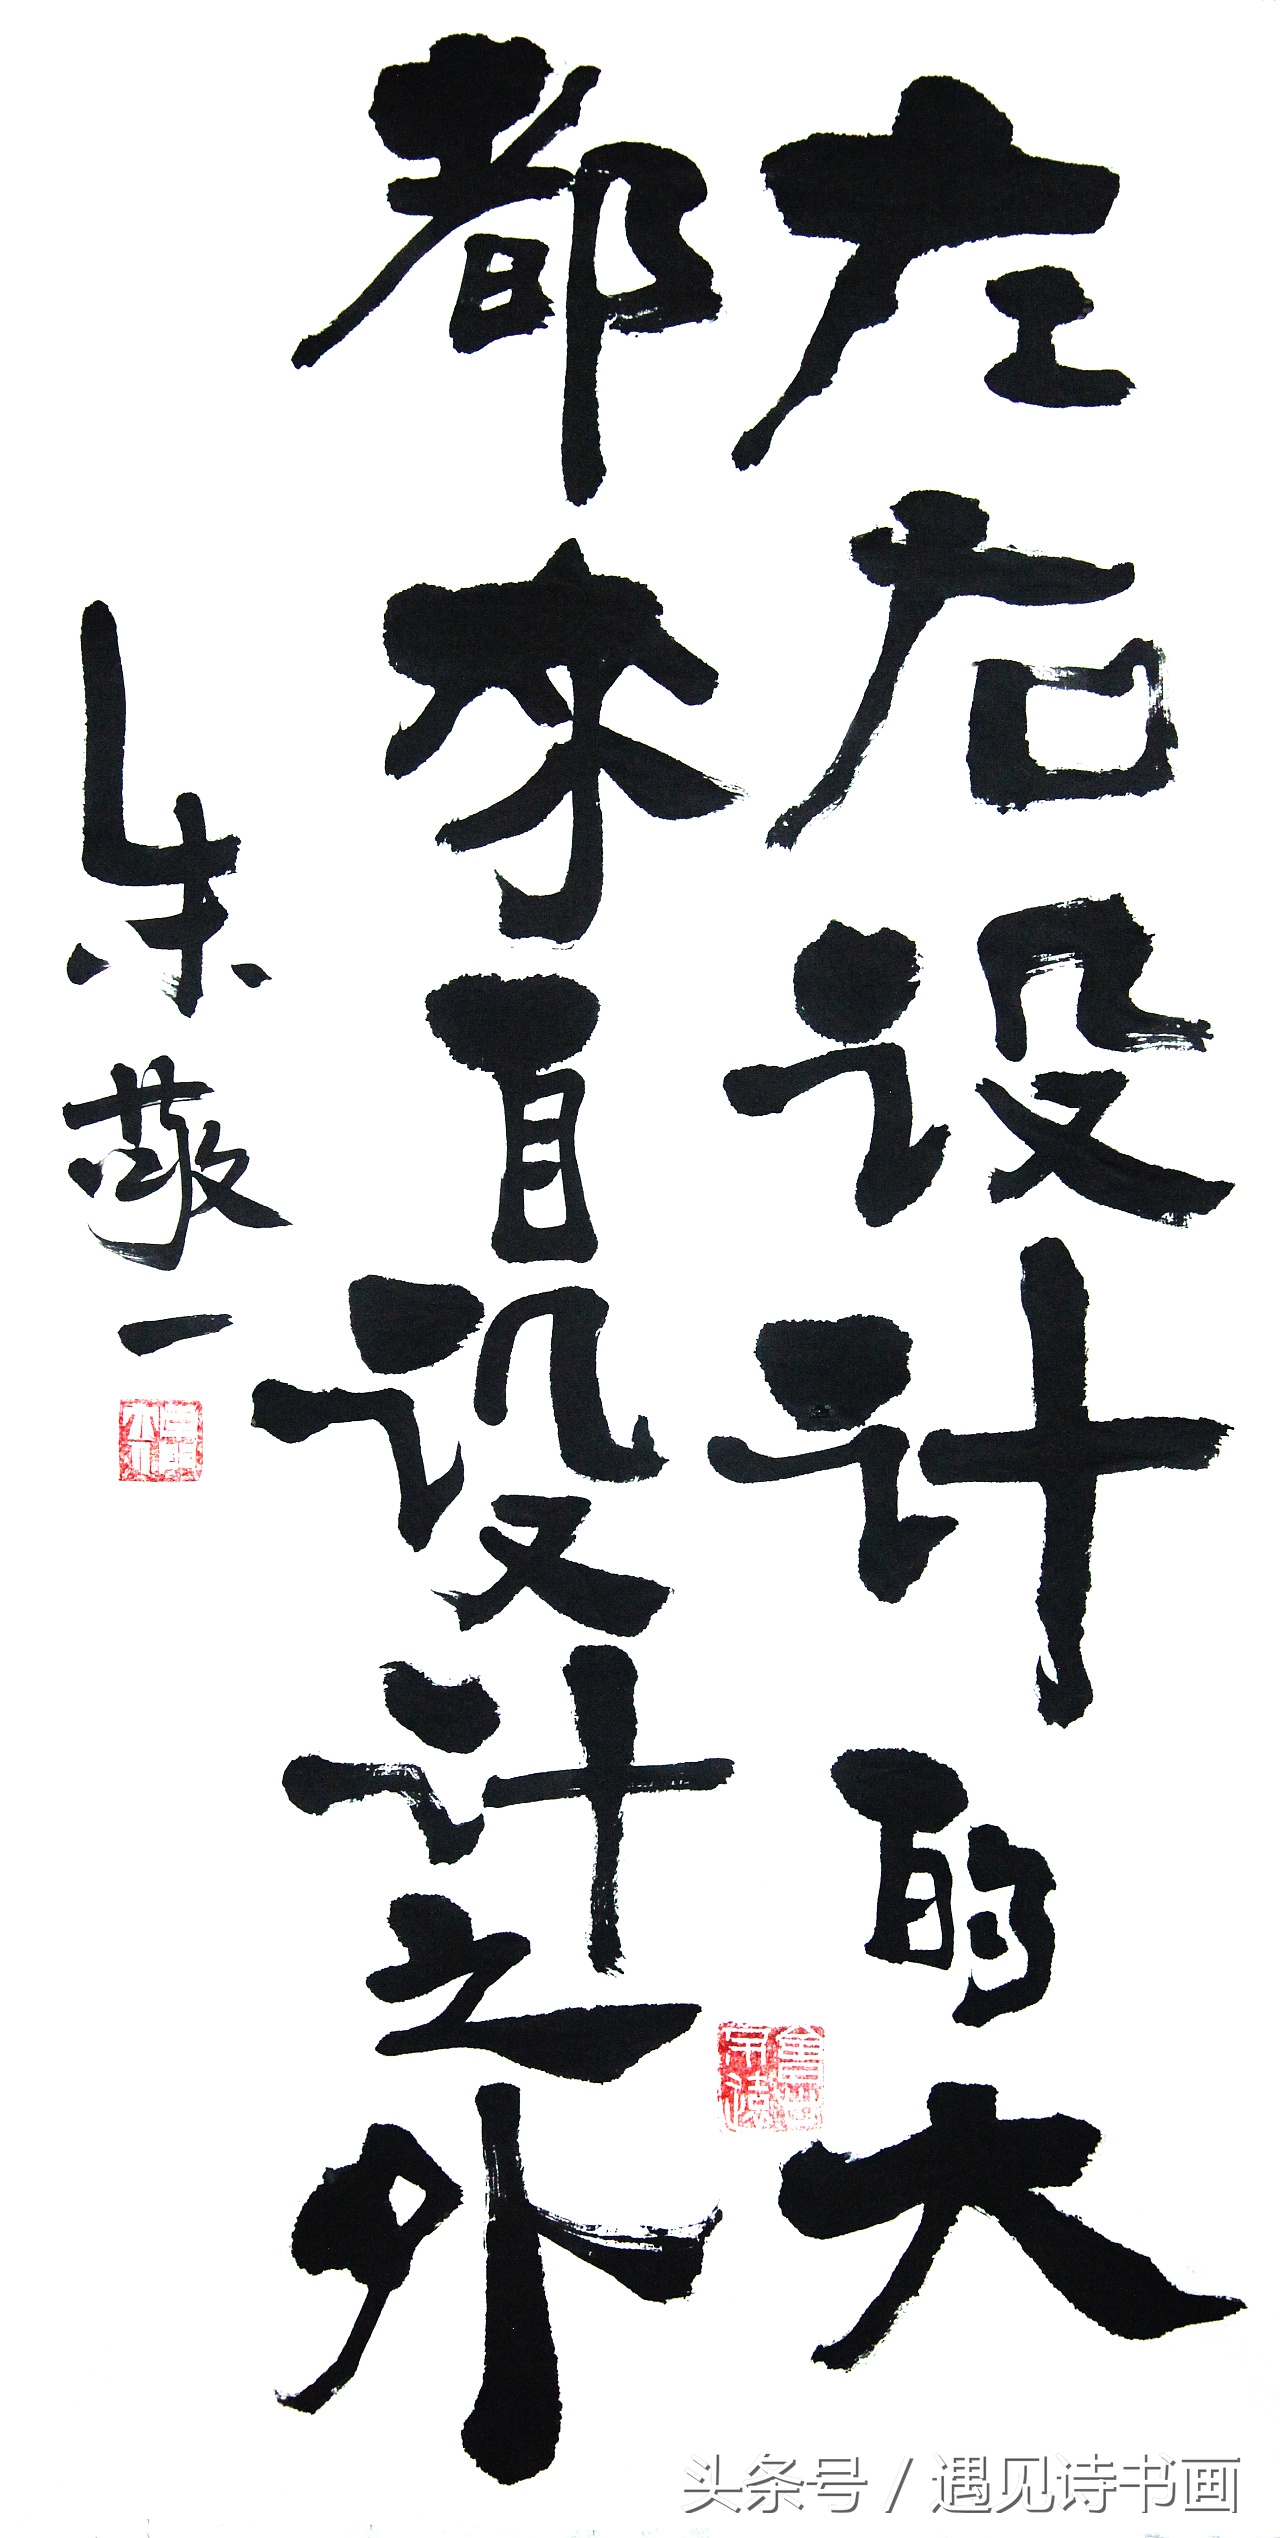 左右设计的大
都來自设计之外
朱敬一
头条号 / 遇见诗书画